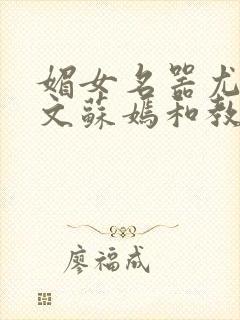 媚女名器尤
文蘇媽和教
廖福成